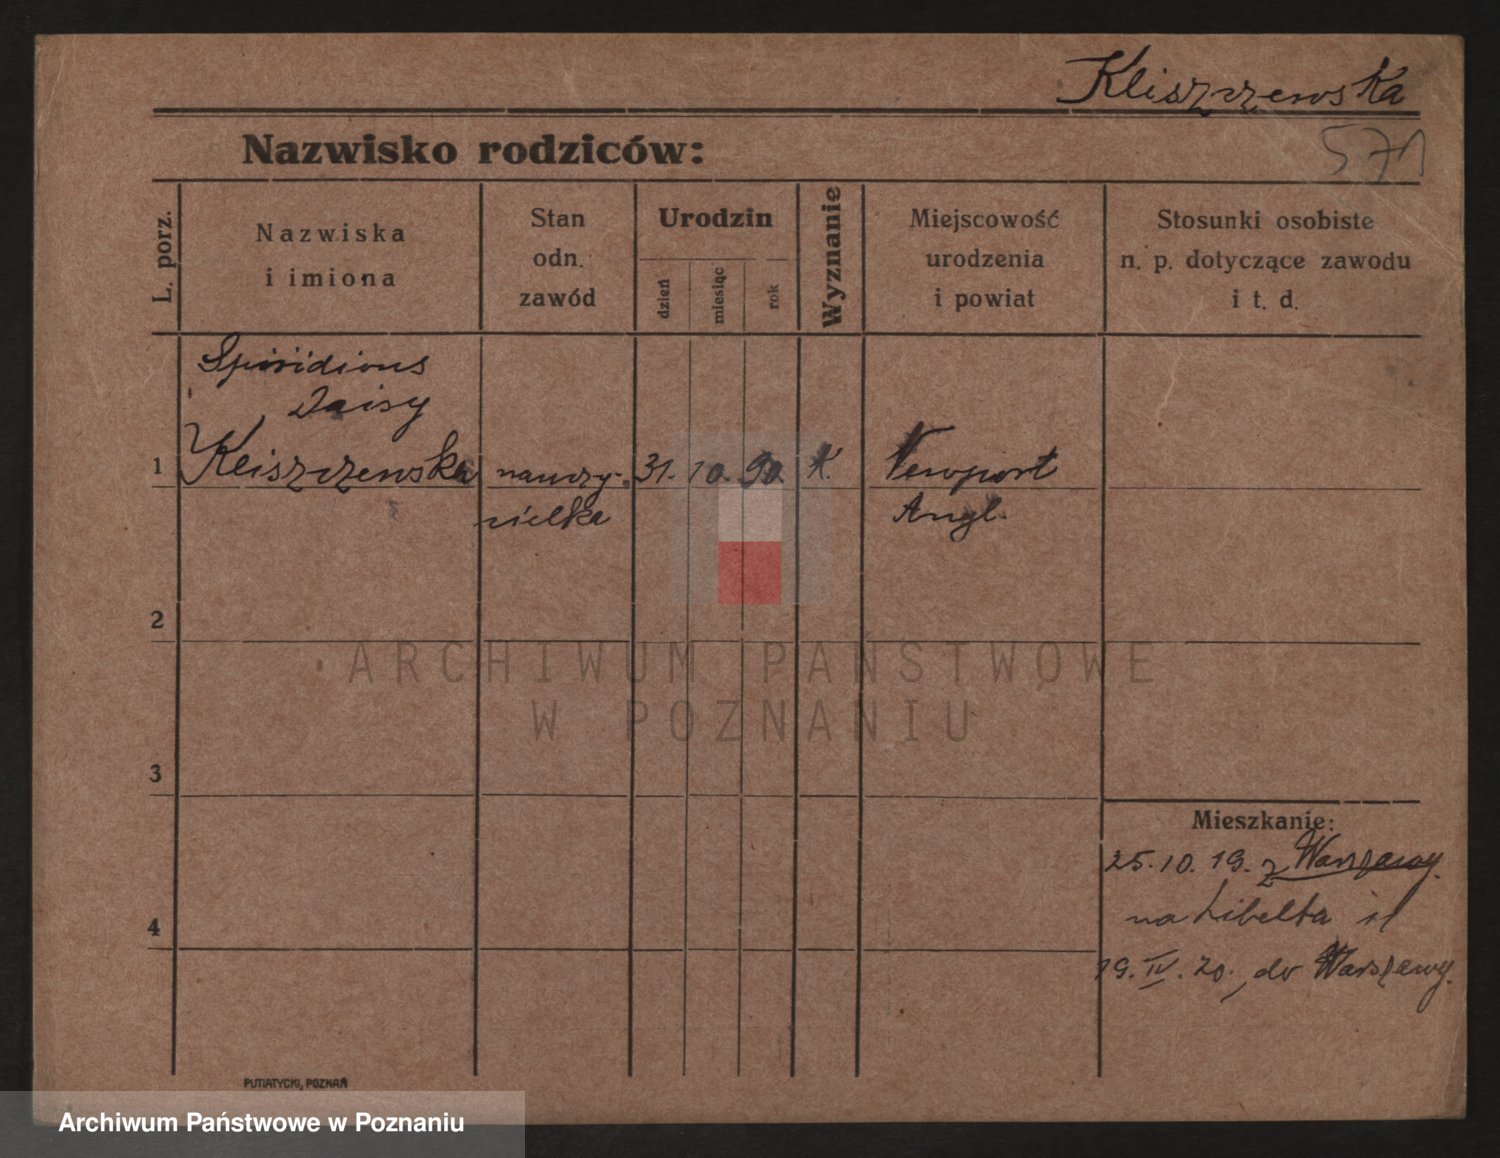 Kliszczewska
571
Nazwisko rodziców:
L. porz.
Nazwiska
i imiona
Stan
odn.
zawód
Urodzin
dzień
miesiąc
rok
Wyznanie
Miejscowość
urodzenia
i powiat
Stosunki osobiste
n. p. dotyczące zawodu
i t. d.
Spiridions
Daisy
1 Kliszczewska nauczy- 31. 10. 90. K. Newport
cielka Angl.
2
3
4
ARCHIWUM PAŃSTWOWE
W POZNANIU
Mieszkanie:
25.10.19. z Warszawy.
na Libelta 11
19.IV.20., do Warszawy.
PUTIATYCKI, POZNAŃ
Archiwum Państwowe w Poznaniu